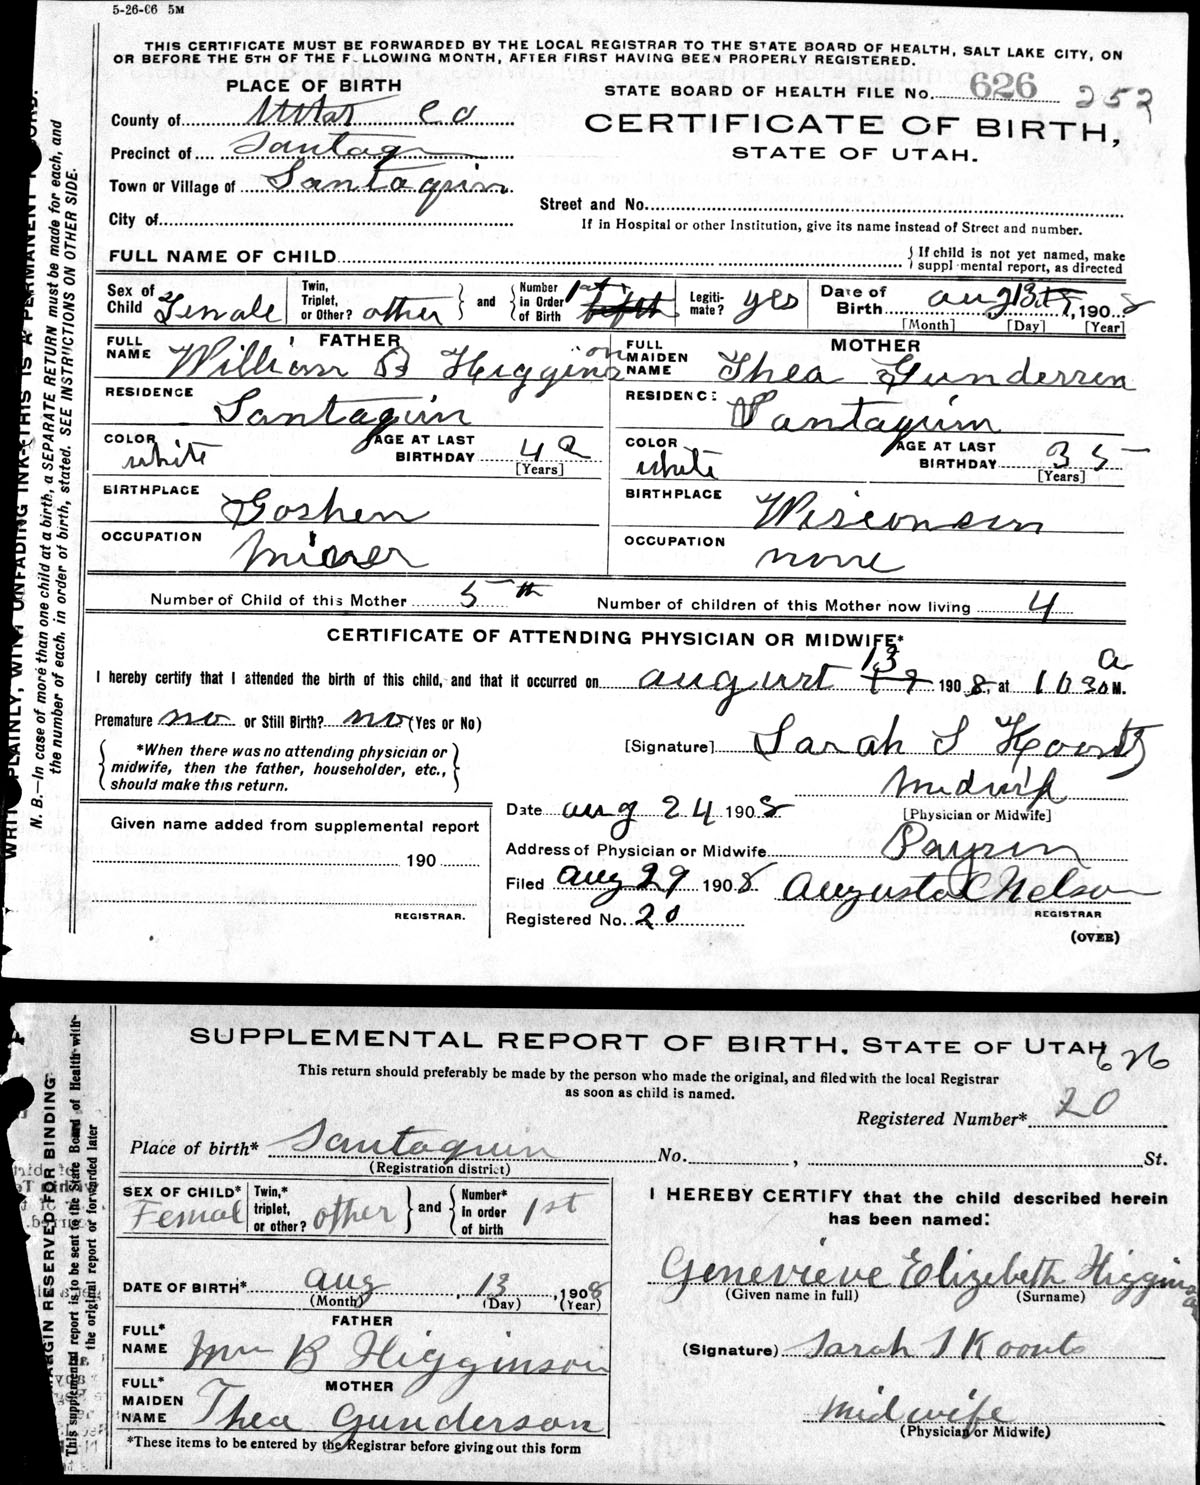 5-26-06 5M
THIS CERTIFICATE MUST BE FORWARDED BY THE LOCAL REGISTRAR TO THE STATE BOARD OF HEALTH, SALT LAKE CITY, ON
OR BEFORE THE 5TH OF THE F LLOWING MONTH, AFTER FIRST HAVING BEEN PROPERLY REGISTERED.
PLACE OF BIRTH
STATE BOARD OF HEALTH FILE No. 626 252
County of Utah Co
CERTIFICATE OF BIRTH,
STATE OF UTAH.
Precinct of Santaq
Town or Village of Santaquin
Street and No.
City of
If in Hospital or other Institution, give its name instead of Street and number.
FULL NAME OF CHILD
If child is not yet named, make
suppl mental report, as directed
Sex of Child Female
Twin, Triplet, or Other? other and
Number in Order of Birth 1st
Legiti-mate? yes
Date of Birth Aug 13, 1908
[Month] [Day] [Year]
FATHER
FULL NAME William B Higginson
MOTHER
FULL MAIDEN NAME Thea Gunderson
RESIDENCE Santaquin
RESIDENCE Santaquin
COLOR white AGE AT LAST BIRTHDAY 42 [Years]
COLOR white AGE AT LAST BIRTHDAY 35 [Years]
BIRTHPLACE Goshen
BIRTHPLACE Wisconsin
OCCUPATION Miner
OCCUPATION none
Number of Child of this Mother 5th Number of children of this Mother now living 4
CERTIFICATE OF ATTENDING PHYSICIAN OR MIDWIFE*
I hereby certify that I attended the birth of this child, and that it occurred on august 13 1908, at 10 30 a M.
Premature no or Still Birth? no (Yes or No)
*When there was no attending physician or
midwife, then the father, householder, etc.,
should make this return.
[Signature] Sarah S Koontz
Midwife
[Physician or Midwife]
Date aug 24 1908
Given name added from supplemental report
190
REGISTRAR.
Address of Physician or Midwife Payson
Filed aug 29 1908. Augusta C Nelson
REGISTRAR
Registered No. 20
(OVER)
WRITE PLAINLY, WITH UNFADING INK—THIS IS A PERMANENT RECORD.
N. B.—In case of more than one child at a birth, a SEPARATE RETURN must be made for each, and
the number of each, in order of birth, stated. SEE INSTRUCTIONS ON OTHER SIDE.
SUPPLEMENTAL REPORT OF BIRTH, STATE OF UTAH
626
This return should preferably be made by the person who made the original, and filed with the local Registrar
as soon as child is named.
Registered Number* 20
Place of birth* Santaquin No. , St.
(Registration district)
SEX OF CHILD* Femal
Twin,* triplet, or other? other and
Number* in order of birth 1st
I HEREBY CERTIFY that the child described herein
has been named:
Genevieve Elizebeth Higginson
(Given name in full) (Surname)
DATE OF BIRTH* Aug, 13, 1908
(Month) (Day) (Year)
FATHER
FULL* NAME Wm B Higginson
(Signature) Sarah S Koontz
MOTHER
FULL* MAIDEN NAME Thea Gunderson
midwife
(Physician or Midwife)
*These items to be entered by the Registrar before giving out this form
MARGIN RESERVED FOR BINDING
This supplemental report is to be sent to the State Board of Health with
the original report or forwarded later